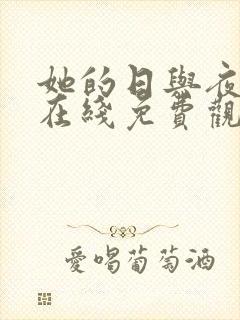 她的日與夜
在綫免費觀
愛喝葡萄酒